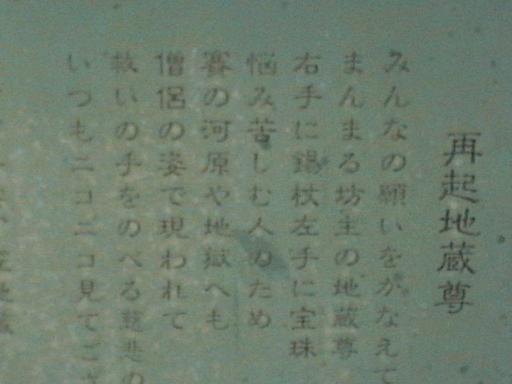 再起地蔵尊
みんなの願いをかなえて
まんまる坊主の地蔵尊
右手に錫杖左手に宝珠
悩み苦しむ人のため
賽の河原や地獄へも
僧侶の姿で現われて
救いの手をのべる慈悲の
いつもニコニコ見てござ